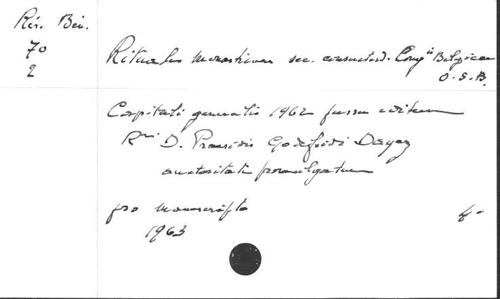 Rit. Ben.
70
2
Rituale Monasticum sec. consuetud. Cong.is Belgicae
O.S.B.
Capituli generalis 1962 jussu editum
R.mi D. Praesidis Godefridi Dayez
auctoritate promulgatum
pro manuscripto
1963